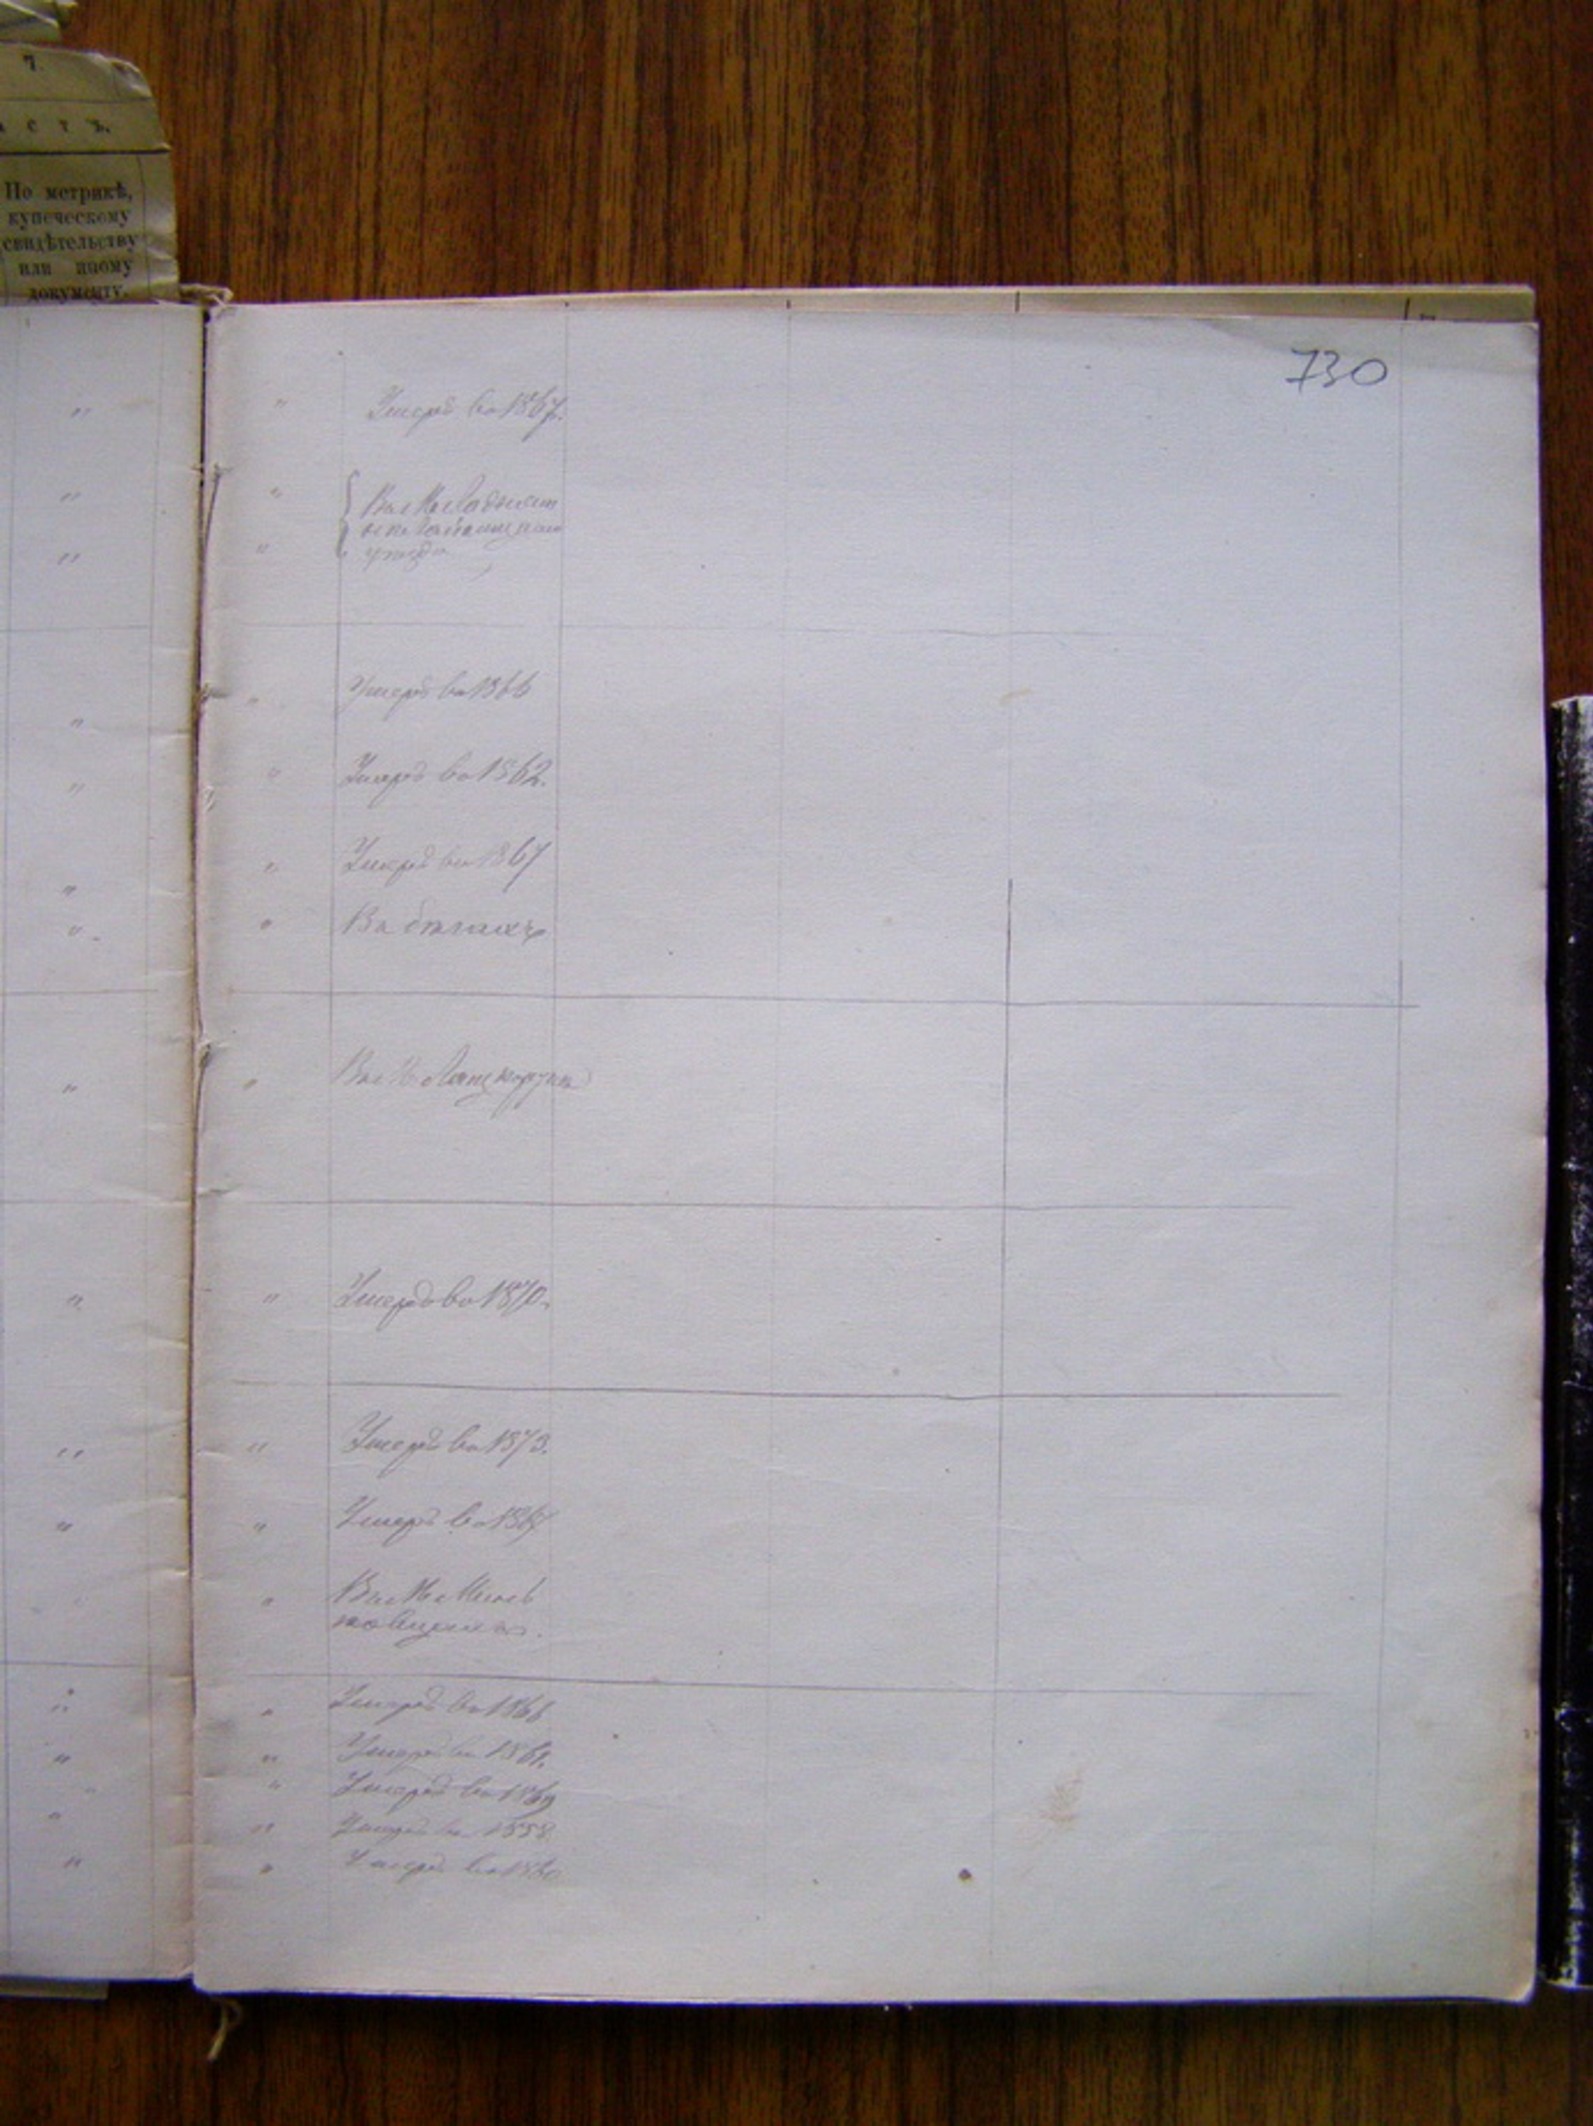 7.
а с т ъ.
По метрикѣ,
купеческому
свидѣтельству
или иному
документу.
730
" " Умеръ въ 1867.
" "
" "
уѣзда
" " Умеръ въ 1866
" " Умеръ въ 1862.
" " Умеръ въ 1867
" " Въ бѣгахъ
" " Въ М.
" " Умеръ въ 1870.
" " Умеръ въ 1873.
" " Умеръ въ 1867
" " Въ М.
" " Умеръ въ 1866
" " Умеръ въ 1861.
" " Умеръ въ 1869
" " Умеръ въ 1858
" " Умеръ въ 1860